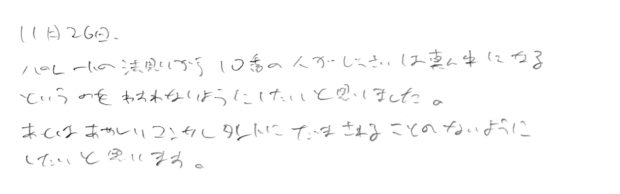 11月26日.
パレートの法則から10番の人がじっさいは真ん中になる
というのをわすれないようにしたいと思いました。
あとはあやしいコンサルタントにだまされることのないように
したいと思います。